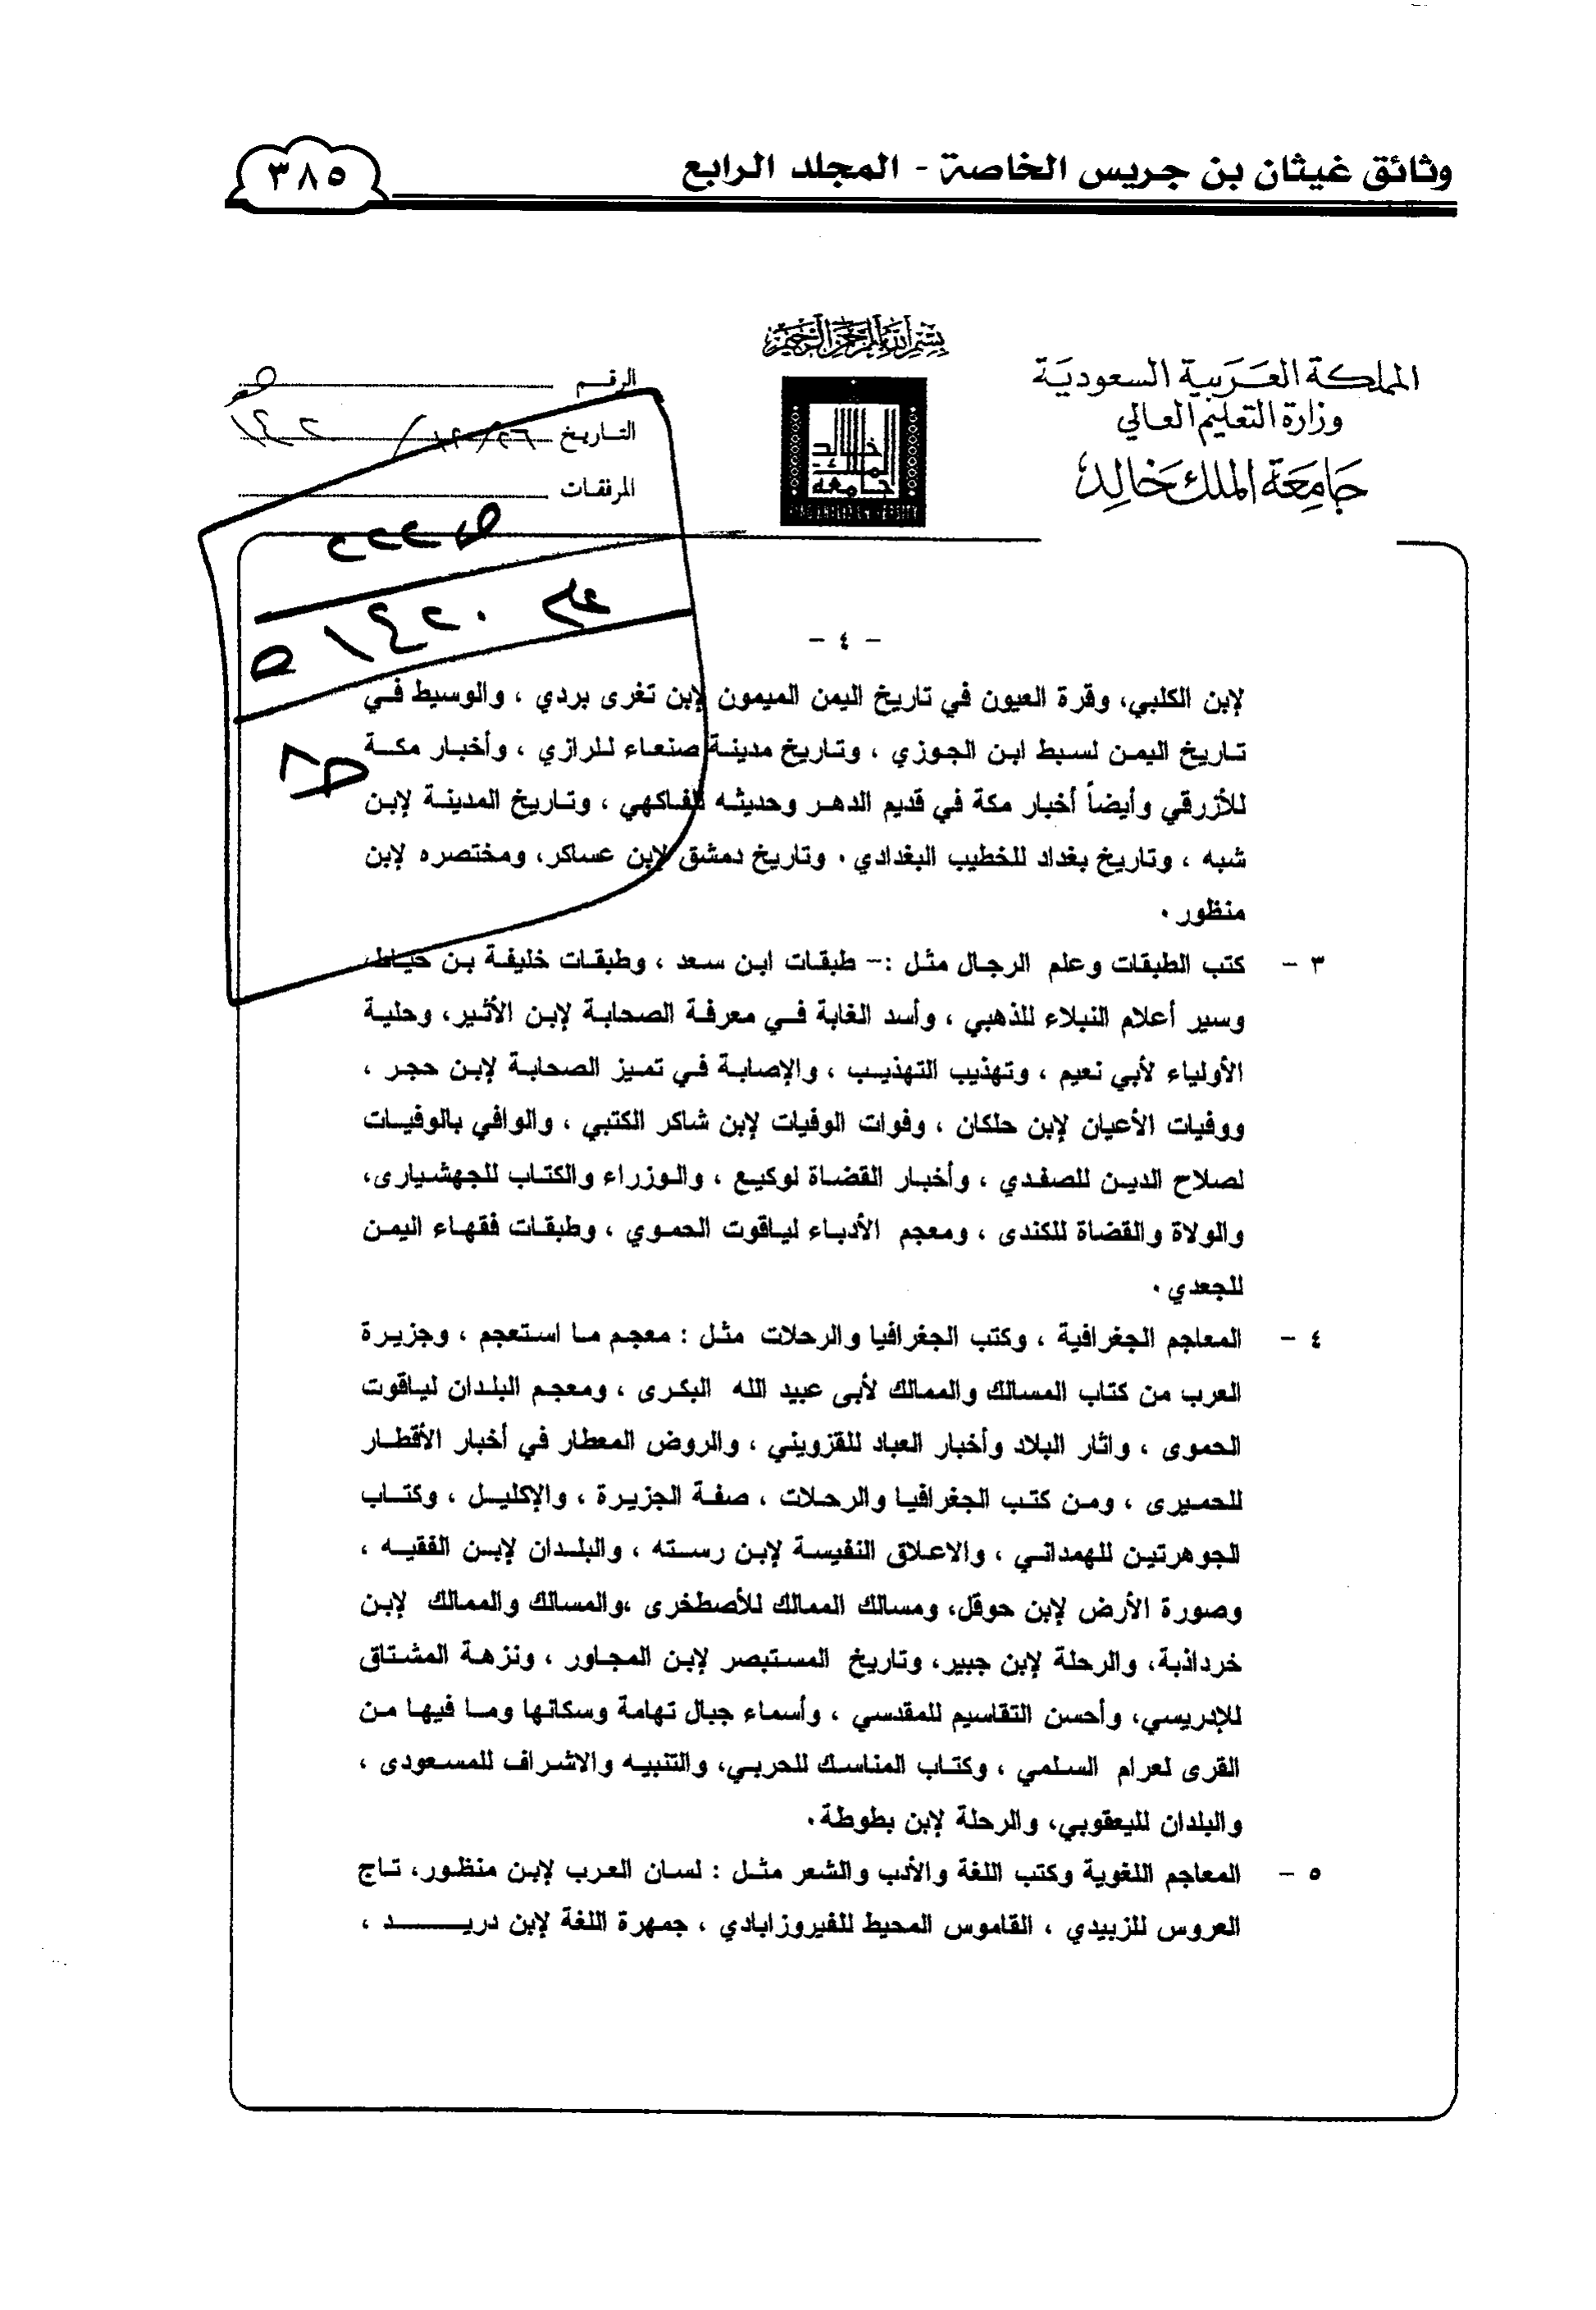 وثائق غيثان بن جريس الخاصة - المجلد الرابع
٣٨٥
بسم الله الرحمن الرحيم
المملكة العربية السعودية
وزارة التعليم العالي
جامعة الملك خالد
الرقم
التاريخ
المرفقات
خالد
الملك
جامعة
- ٤ -
لإبن الكلبي، وقرة العيون في تاريخ اليمن الميمون لإبن تغرى بردي ، والوسيط في
تاريخ اليمن لسبط ابن الجوزي ، وتاريخ مدينة صنعاء للرازي ، وأخبار مكة
للأزرقي وأيضاً أخبار مكة في قديم الدهر وحديثه للفاكهي ، وتاريخ المدينة لإبن
شبه ، وتاريخ بغداد للخطيب البغدادي . وتاريخ دمشق لإبن عساكر، ومختصره لإبن
منظور .
٣ - كتب الطبقات وعلم الرجال مثل :- طبقات ابن سعد ، وطبقات خليفة بن خياط،
وسير أعلام النبلاء للذهبي ، وأسد الغابة في معرفة الصحابة لإبن الأثير، وحلية
الأولياء لأبي نعيم ، وتهذيب التهذيب ، والإصابة في تميز الصحابة لإبن حجر ،
ووفيات الأعيان لإبن حلكان ، وفوات الوفيات لإبن شاكر الكتبي ، والوافي بالوفيات
لصلاح الدين للصفدي ، وأخبار القضاة لوكيع ، والوزراء والكتاب للجهشيارى،
والولاة والقضاة للكندى ، ومعجم الأدباء لياقوت الحموي ، وطبقات فقهاء اليمن
للجعدي .
٤ - المعاجم الجغرافية ، وكتب الجغرافيا والرحلات مثل : معجم ما استعجم ، وجزيرة
العرب من كتاب المسالك والممالك لأبى عبيد الله البكرى ، ومعجم البلدان لياقوت
الحموى ، واثار البلاد وأخبار العباد للقزويني ، والروض المعطار في أخبار الأقطار
للحميرى ، ومن كتب الجغرافيا والرحلات ، صفة الجزيرة ، والإكليل ، وكتاب
الجوهرتين للهمداني ، والاعلاق النفيسة لإبن رسته ، والبلدان لإبن الفقيه ،
وصورة الأرض لإبن حوقل، ومسالك الممالك للأصطخرى ،والمسالك والممالك لإبن
خرداذبة، والرحلة لإبن جبير، وتاريخ المستبصر لإبن المجاور ، ونزهة المشتاق
للإدريسي، وأحسن التقاسيم للمقدسي ، وأسماء جبال تهامة وسكانها وما فيها من
القرى لعرام السلمي ، وكتاب المناسك للحربي، والتنبيه والاشراف للمسعودى ،
والبلدان لليعقوبي، والرحلة لإبن بطوطة.
٥ - المعاجم اللغوية وكتب اللغة والأدب والشعر مثل : لسان العرب لإبن منظور، تاج
العروس للزبيدي ، القاموس المحيط للفيروزابادي ، جمهرة اللغة لإبن دريـــــد ،